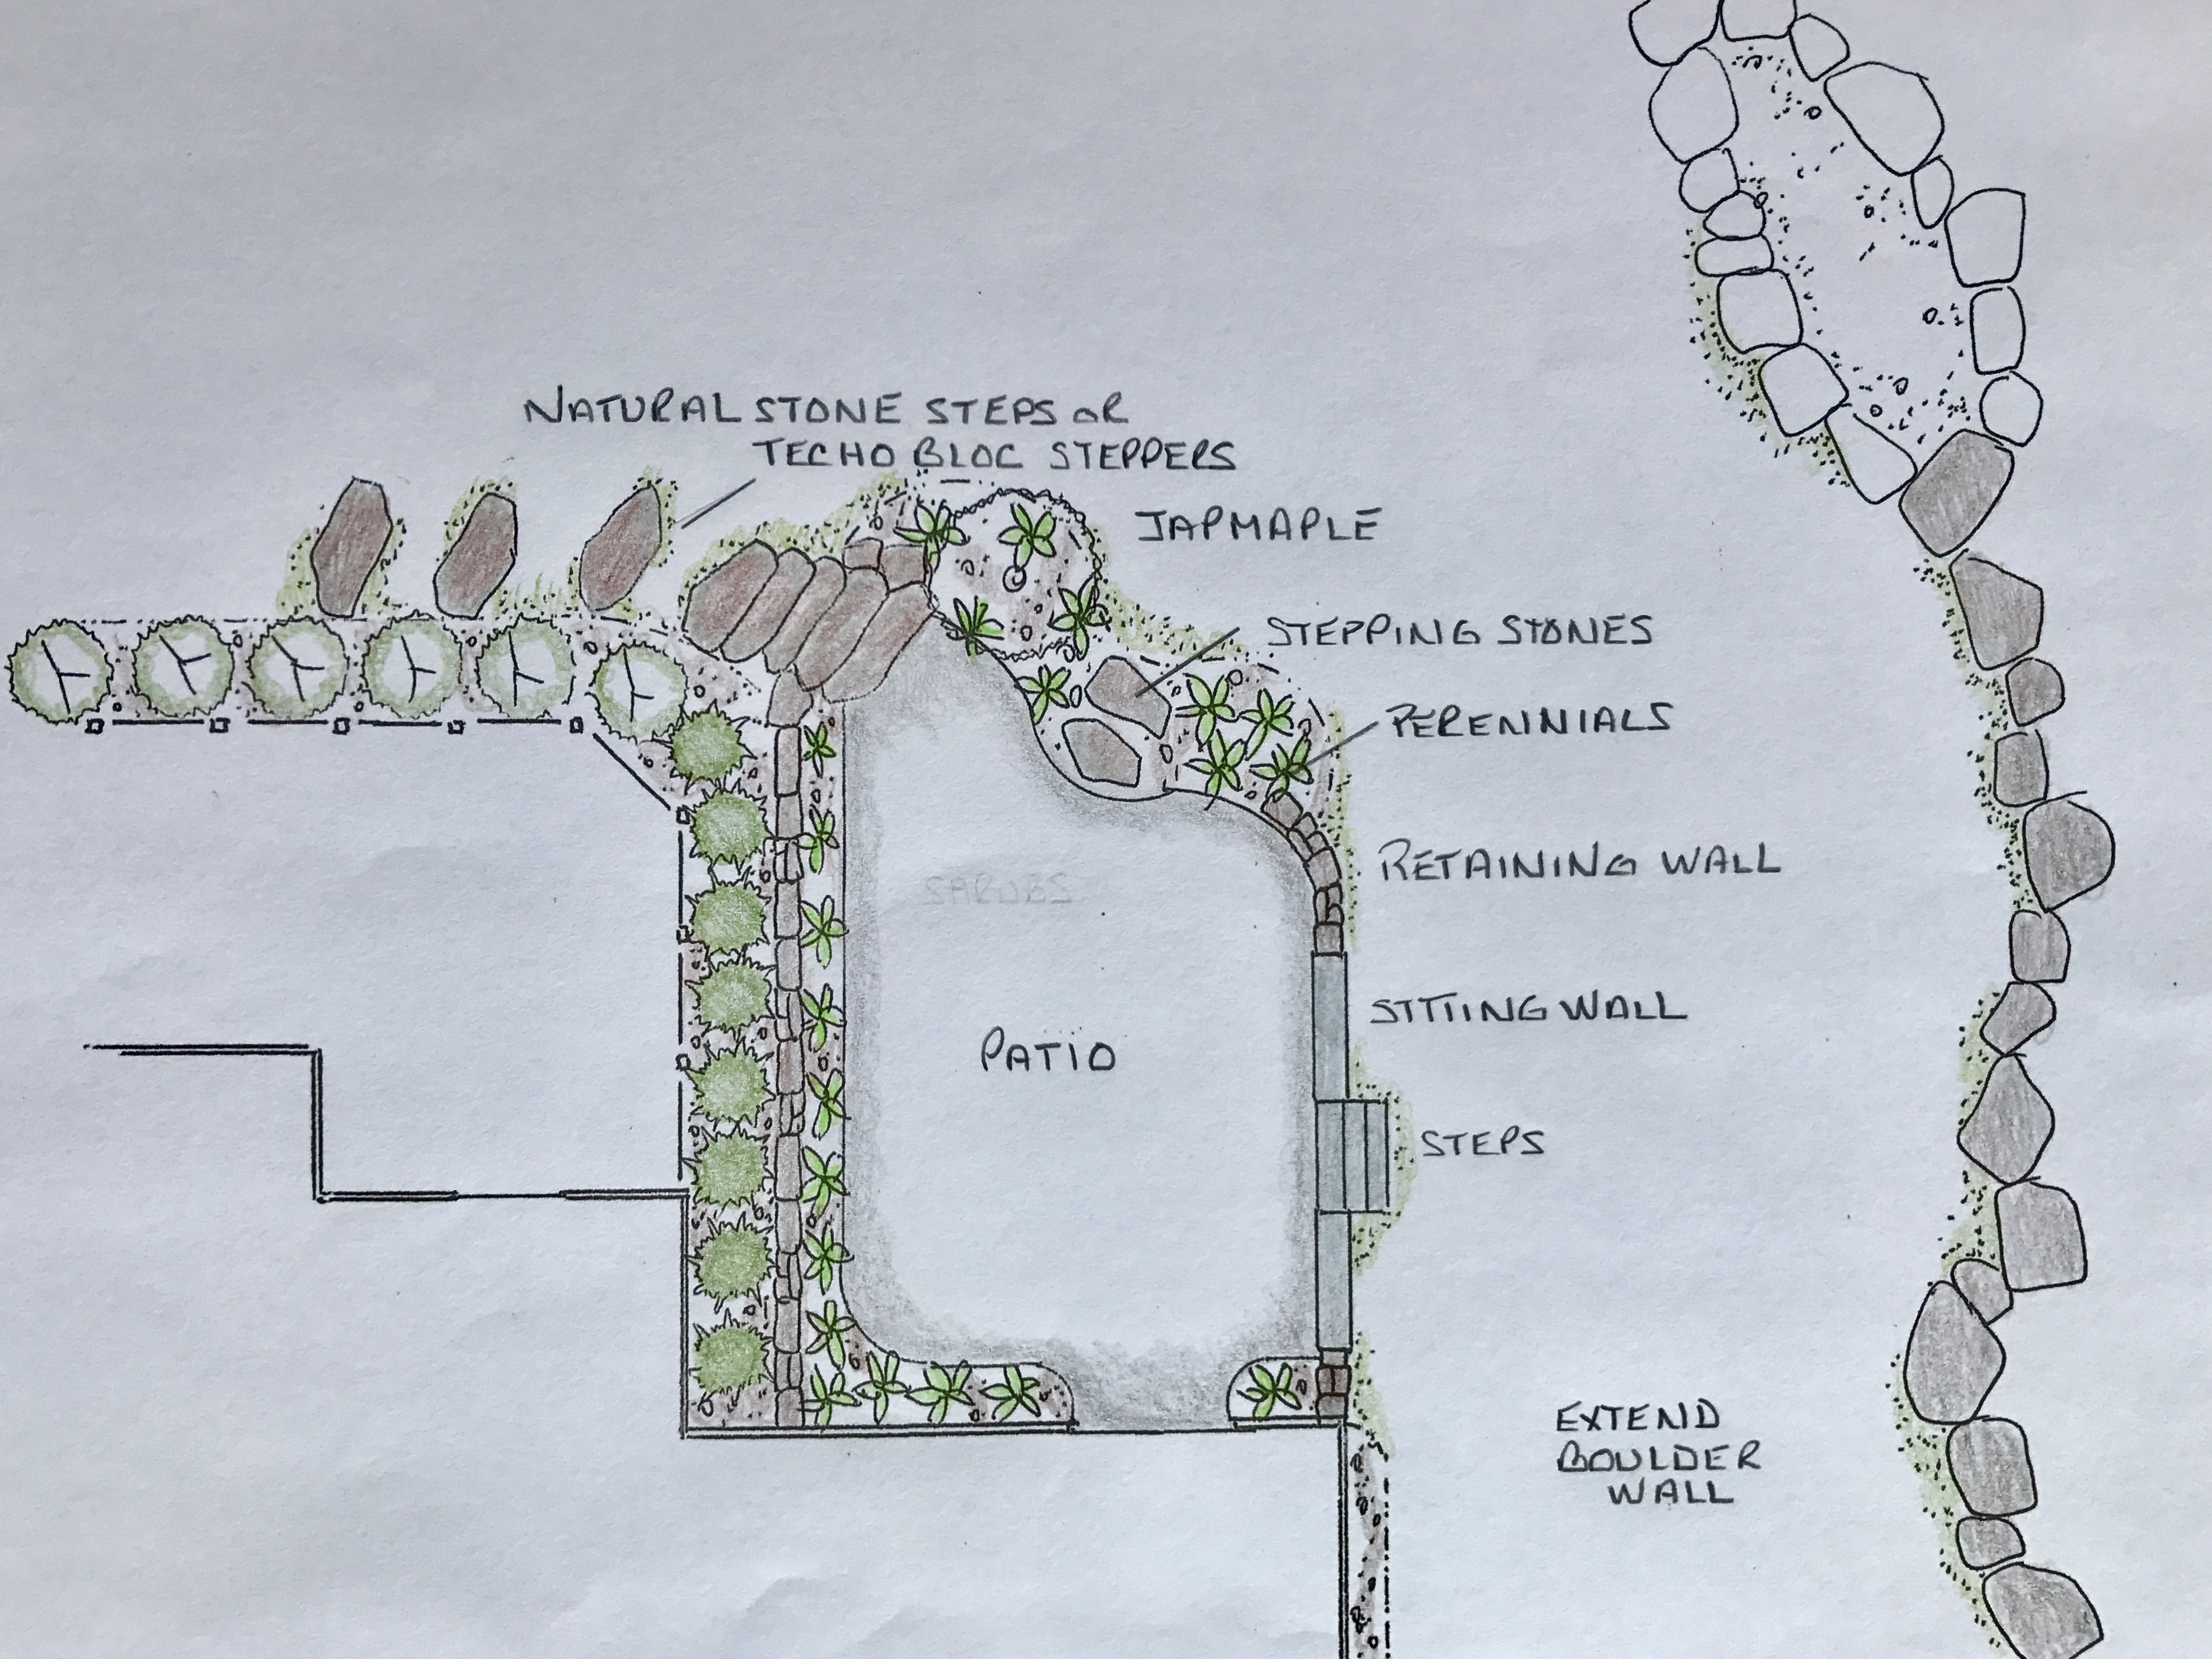 NATURAL STONE STEPS OR
TECHO BLOC STEPPERS
JAP MAPLE
STEPPING STONES
PERENNIALS
RETAINING WALL
SHRUBS
SITTING WALL
PATIO
STEPS
EXTEND
BOULDER
WALL